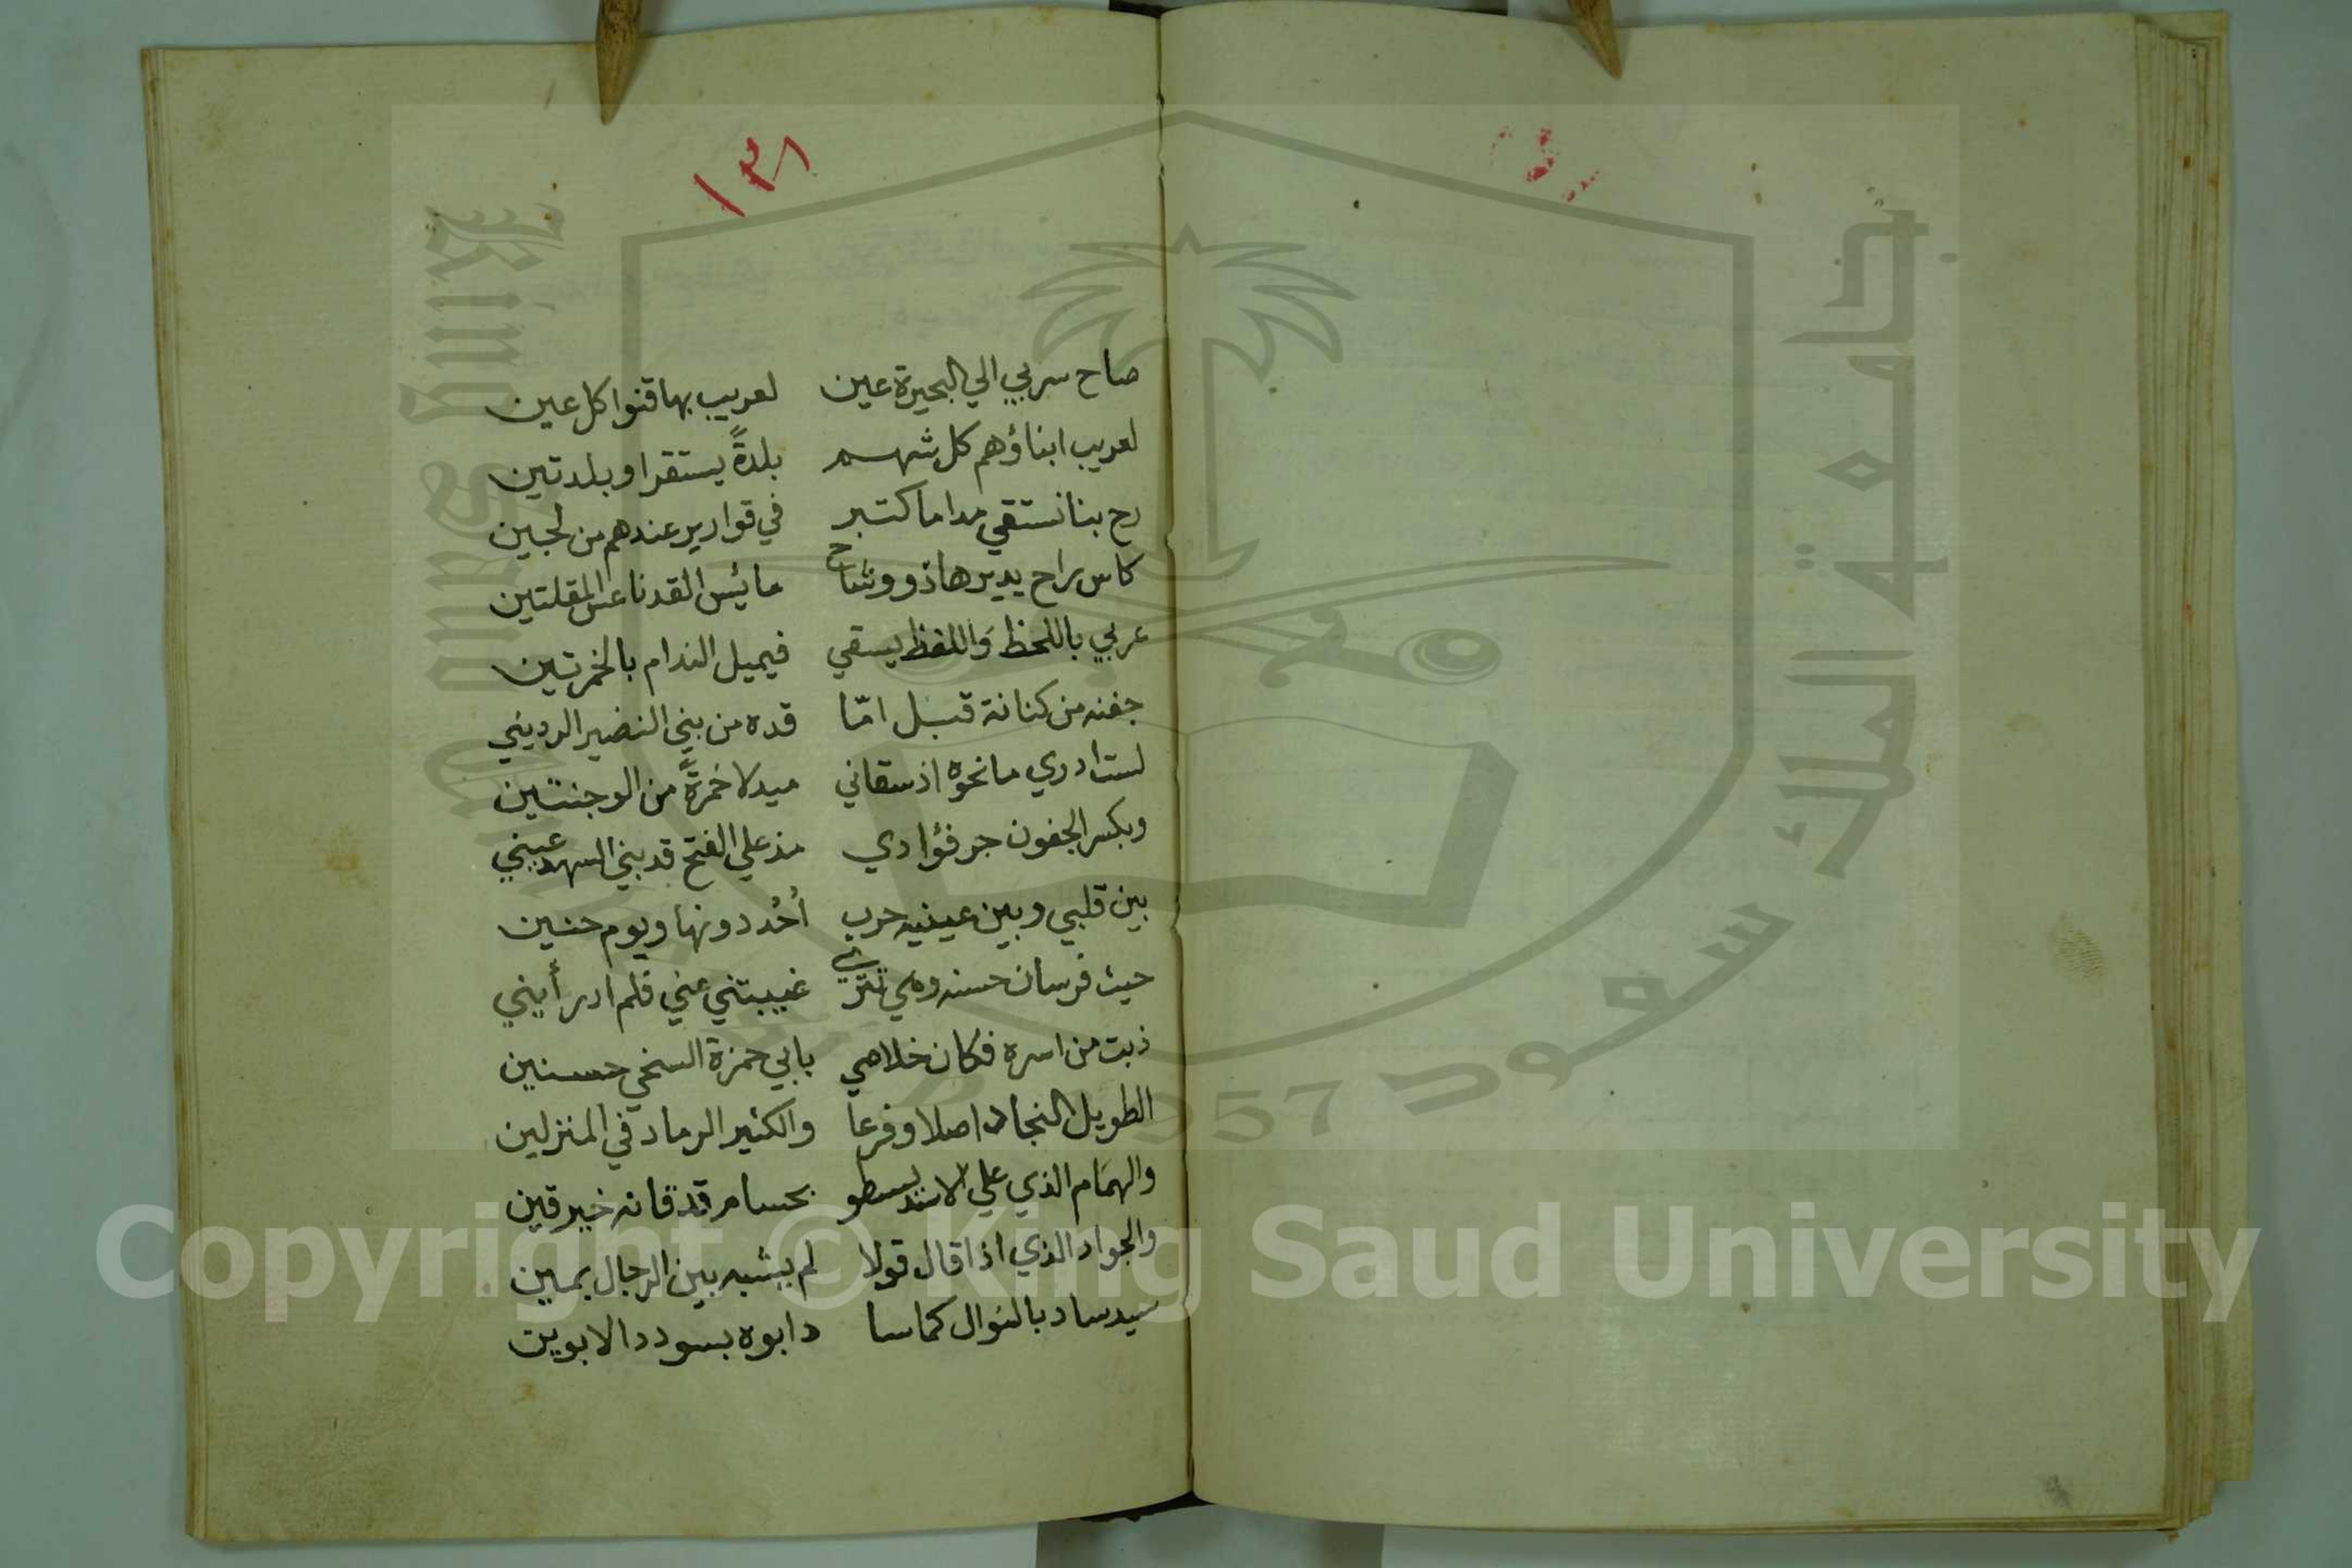 ١٣٨
صاح سربي الي البحيرة عين لعريب بها قنوا كل عين
لعريب ابناؤهم كل شهم بلدةً يستقر او بلدتين
رح بنا نستقي مداما كتبر في قوارير عندهم من لجين
كاس راح يديرها ذو وشاح مائس القد ناعس المقلتين
عربي باللحظ وَاللفظ يسقي فيميل الندام بالخمرتين
جفنه من كنانة قبل امّا قده من بني النضير الرديني
لست ادري ما نحوه اذ سقاني ميدلا خمرةً من الوجنتين
وبكسر الجفون جر فؤادي مذ علي الفتح قد بني السهد عيني
بين قلبي وبين عينيه حرب أُحُد دونها ويوم حنين
حيث فرسان حسنه وهي تترى غيبتني عني فلم ادر أيني
ذبت من اسره فكان خلاصي بابي حمزة السخي حسنين
الطويل النجاد اصلا وفرعا والكثير الرماد في المنزلين
والهمَام الذي علي الاسد يسطو بحسام قد قانه خير قين
والجواد الذي اذا قال قولا لم يشبه بين الرجال بمين
سيد ساد بالنوال كما سا د ابوه بسودد الابوين
جامعة الملك سعود
1957
Copyright © King Saud University